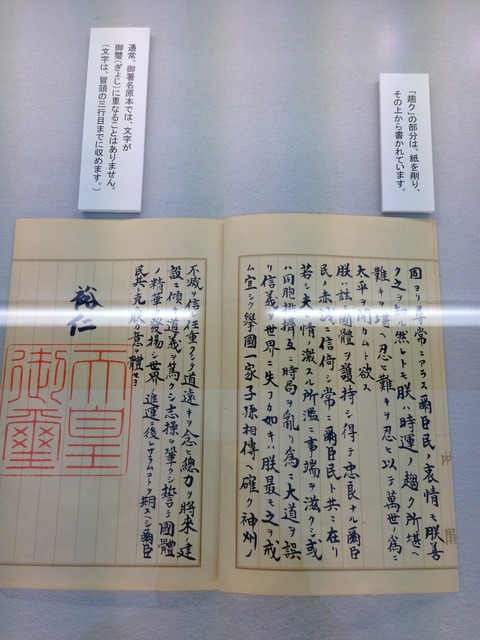 「趨ク」の部分は、紙を削り、
その上から書かれています。
通常、御署名原本では、文字が
御璽(ぎょじ)に重なることはありません。
(文字は、冒頭の三行目までに収めます。)
固ヨリ尋常ニアラス爾臣民ノ衷情モ朕善
ク之ヲ知ル然レトモ朕ハ時運ノ趨ク所堪ヘ
難キヲ堪ヘ忍ヒ難キヲ忍ヒ以テ萬世ノ爲ニ
太平ヲ開カムト欲ス
朕ハ茲ニ國體ヲ護持シ得テ忠良ナル爾臣
民ノ赤誠ニ信倚シ常ニ爾臣民ト共ニ在リ
若シ夫レ情ノ激スル所濫ニ事端ヲ滋クシ或
ハ同胞排擠互ニ時局ヲ亂リ爲ニ大道ヲ誤
リ信義ヲ世界ニ失フカ如キハ朕最モ之ヲ戒
ム宜シク擧國一家子孫相傳ヘ確ク神州ノ
不滅ヲ信シ任重クシテ道遠キヲ念ヒ總力ヲ將來ノ建
設ニ傾ケ道義ヲ篤クシ志操ヲ鞏クシ誓テ國體
ノ精華ヲ發揚シ世界ノ進運ニ後レサラムコトヲ期スヘシ爾臣
民其レ克ク朕カ意ヲ體セヨ
裕仁
天皇
御璽